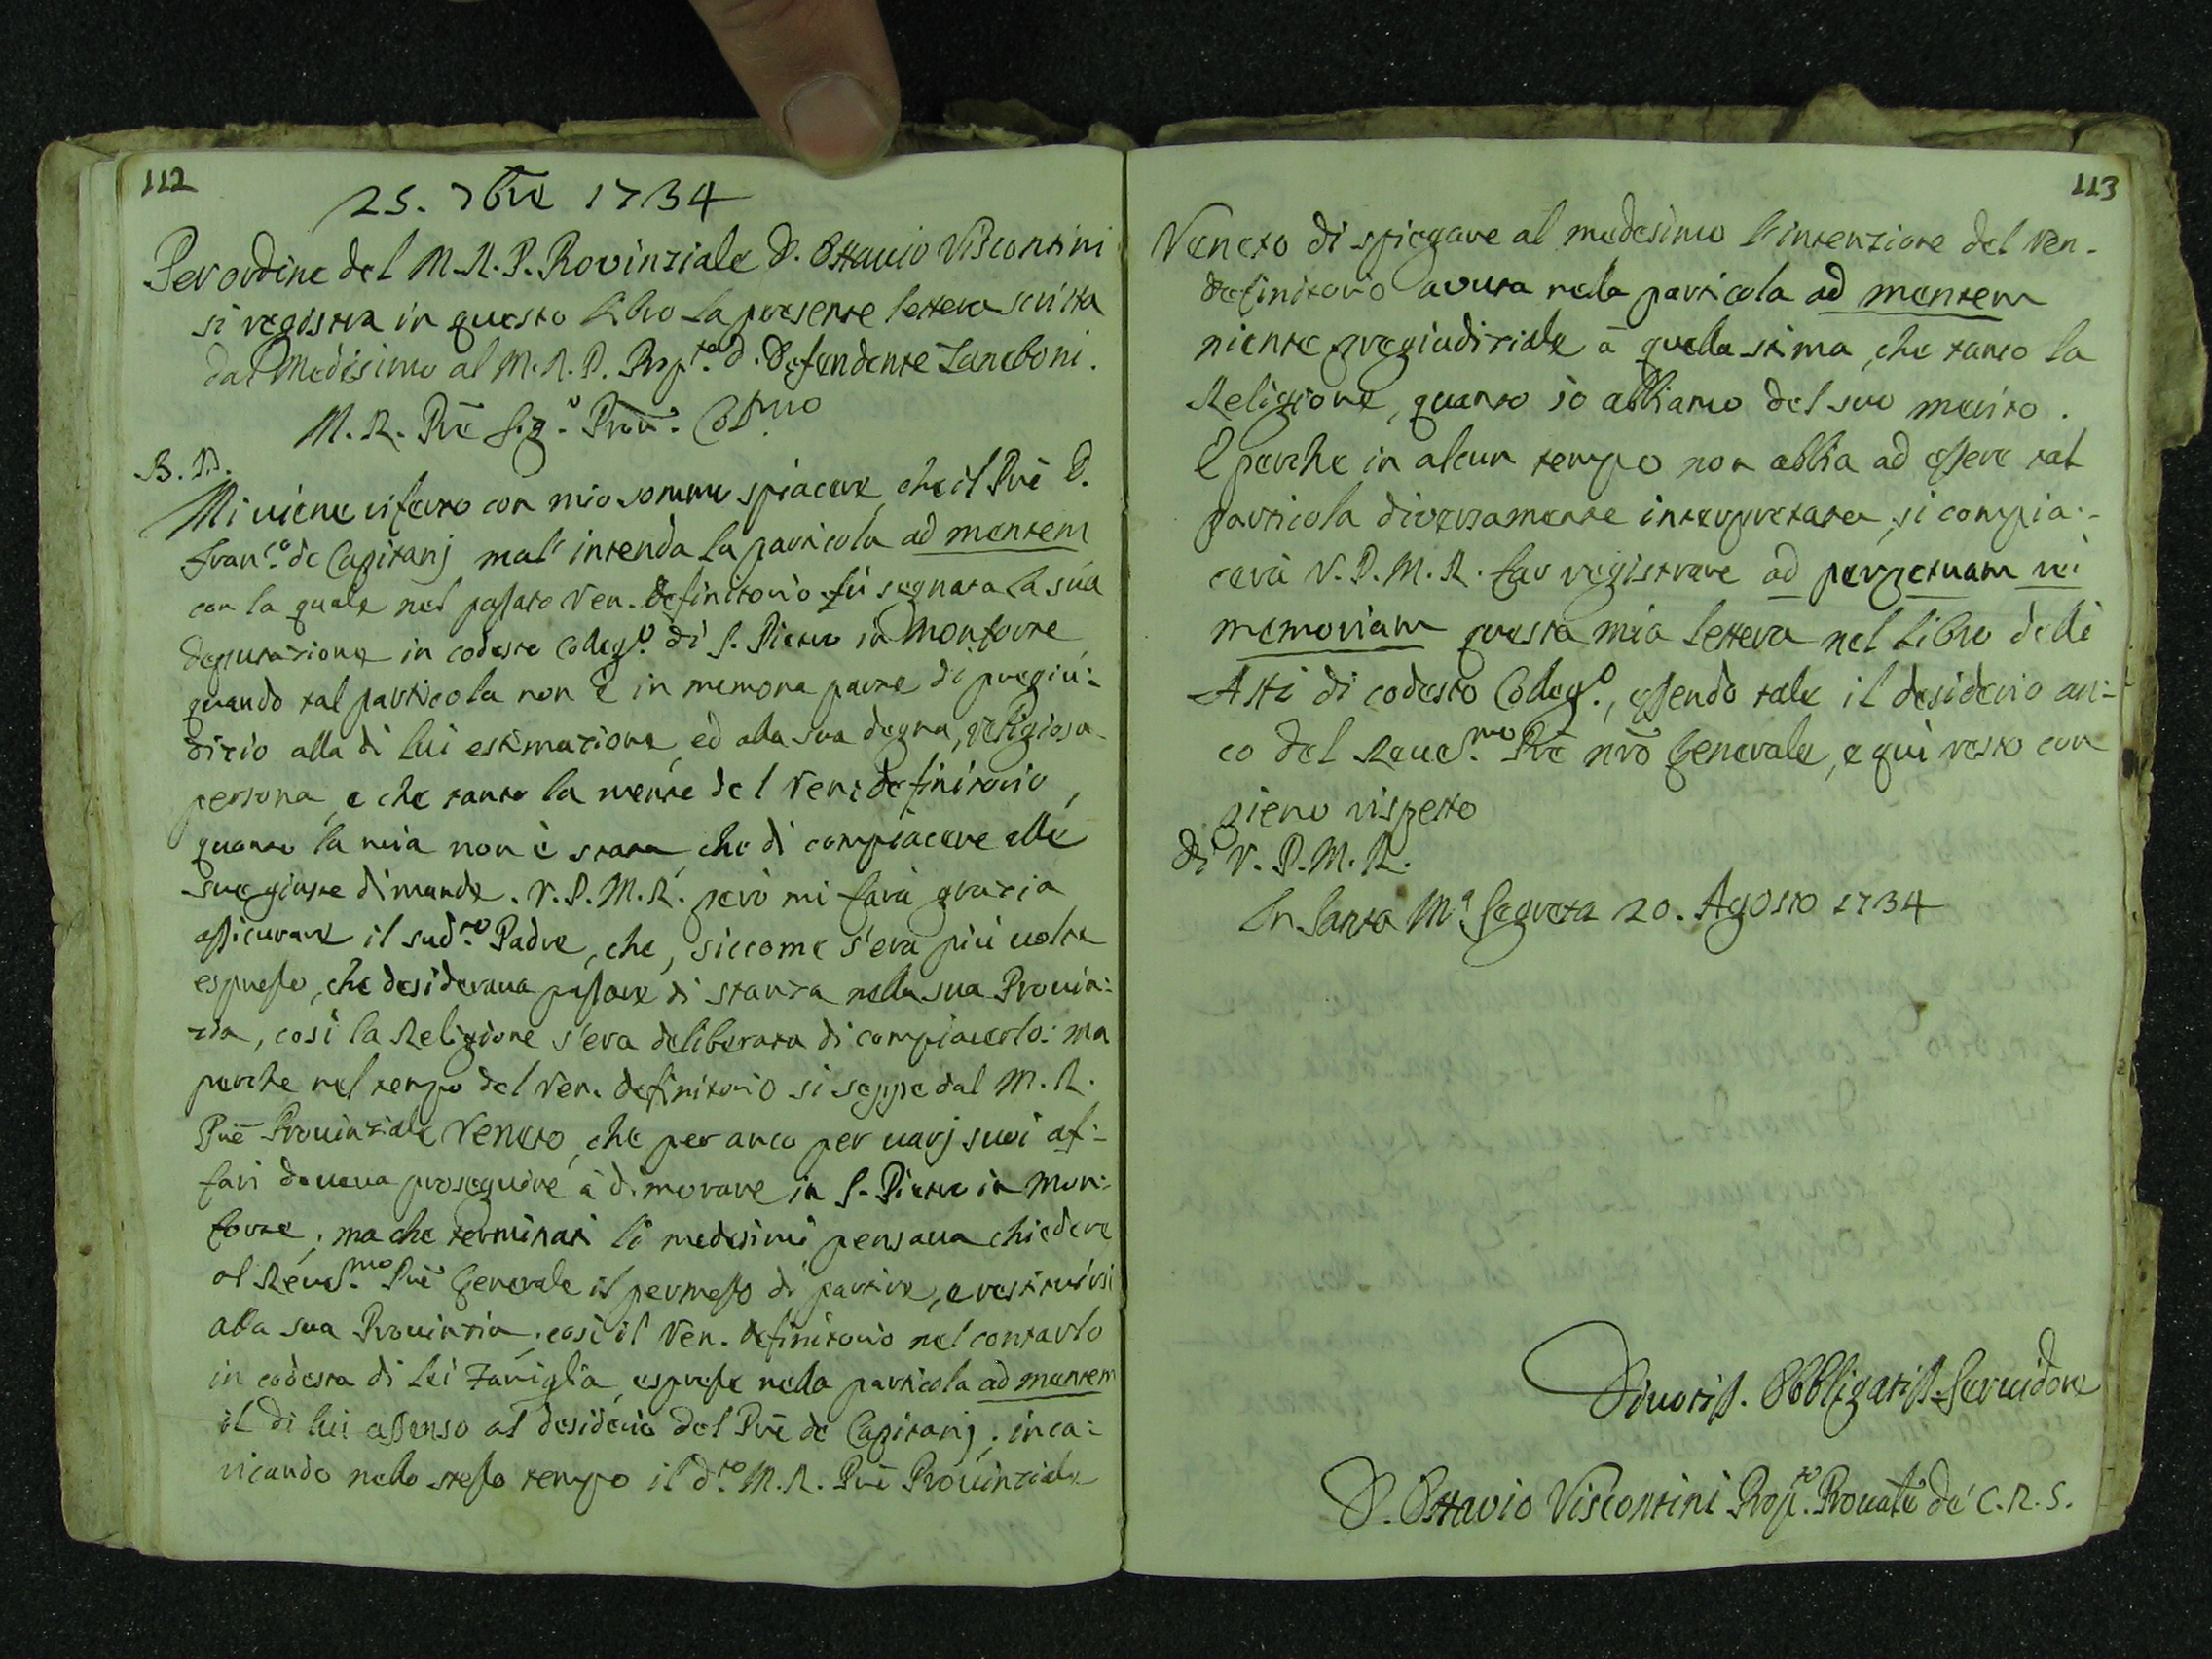 112
25. 7bre 1734
Per ordine del M. R. P. Provinziale D. Ottavio Viscontini
si registra in questo libro la presente lettera scritta
dal medesimo al M. R. P. Prep.to D. Defendente Zaneboni.
M. R. Pre Sig.r Proñ. Col.mo
B. D.
Mi viene riferto con mio sommo spiacere, che il Prē D.
Fran.co de Capitanj mal' intenda la particola ad mentem
con la quale nel passato Ven. Definitorio fù segnata la sua
deputazione in codesto Colleg.o di S. Pietro in Monforte,
quando tal particola non è in menoma parte di pregiu:
dizio alla di lui estimazione, ed alla sua degna, religiosa
persona, e che tanto la mente del Ven: definitorio,
quanto la mia non è stata, che di compiacere alle
sue giuste dimande. V. P. M. R. però mi farà grazia
assicurare il sud.to Padre, che, siccome s'era più uolte
espresso, che desideraua passare di stanza nella sua Prouin:
zia, così la Religione s'era deliberata di compiacerlo: ma
perche nel tempo del Ven. definitorio si seppe dal M. R.
Prē Prouinziale Veneto, che per anco per uarj suoi af:
fari doueua proseguire à dimorare in S. Pietro in Mon:
forte; ma che terminati li medesimi pensaua chiedere
al ReueS.mo Prē Generale il permesso di partire, e restituirsi
alla sua Prouinzia, così il Ven. definitorio nel contarlo
in codesta di lei Famiglia, espresse nella particola ad mentem
il di lui assenso al desiderio del Prē de Capitanj; inca:
ricando nello stesso tempo il d.to M. R. Prē Prouinziale
113
Veneto di spiegare al medesimo l'intenzione del Ven.
definitorio avuta nella particola ad mentem
niente pregiudiziale à quella stima, che tanto la
Religione, quanto io abbiamo del suo merito.
E perche in alcun tempo non abbia ad essere tal
particola diversamente interpretata, si compia:
cerà V. P. M. R. far registrare ad perpetuam rei
memoriam questa mia lettera nel libro delli
Atti di codesto Colleg.o, essendo tale il desiderio an:
co del ReueS.mo Prē nrō Generale, e qui resto con
pieno rispetto
di V. P. M. R.
In Santa M.a Segreta 20. Agosto 1734
Diuotiss. Obbligatiss. Seruidore
D. Ottavio Viscontini Prep.to Prouāle de' C. R. S.